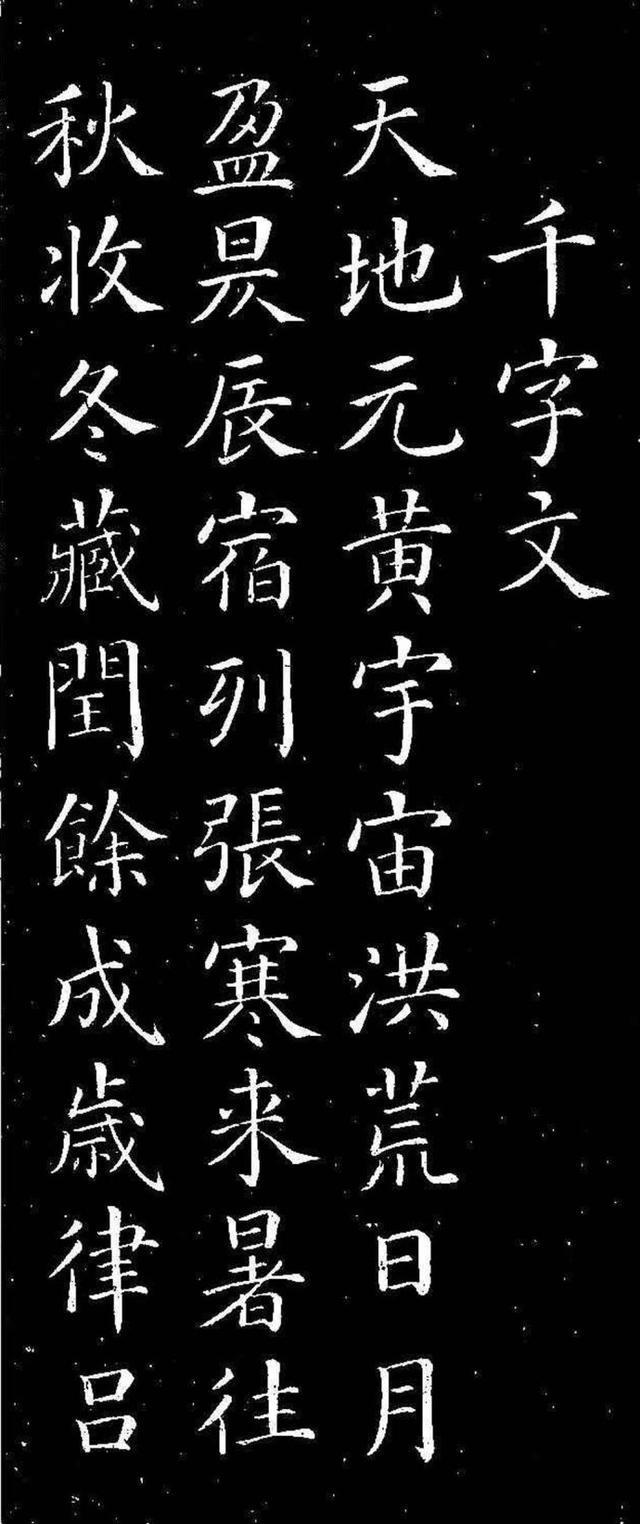 千字文
天地元黄宇宙洪荒日月
盈昃辰宿列張寒来暑往
秋收冬藏閏餘成歲律呂